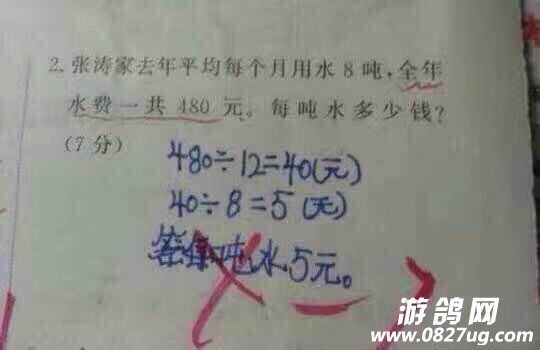 2. 张涛家去年平均每个月用水 8 吨，全年
水费一共 480 元。每吨水多少钱？
（7 分）
480÷12=40(元)
40÷8=5(元)
答:每吨水5元。
游鸽网
www.0827ug.com